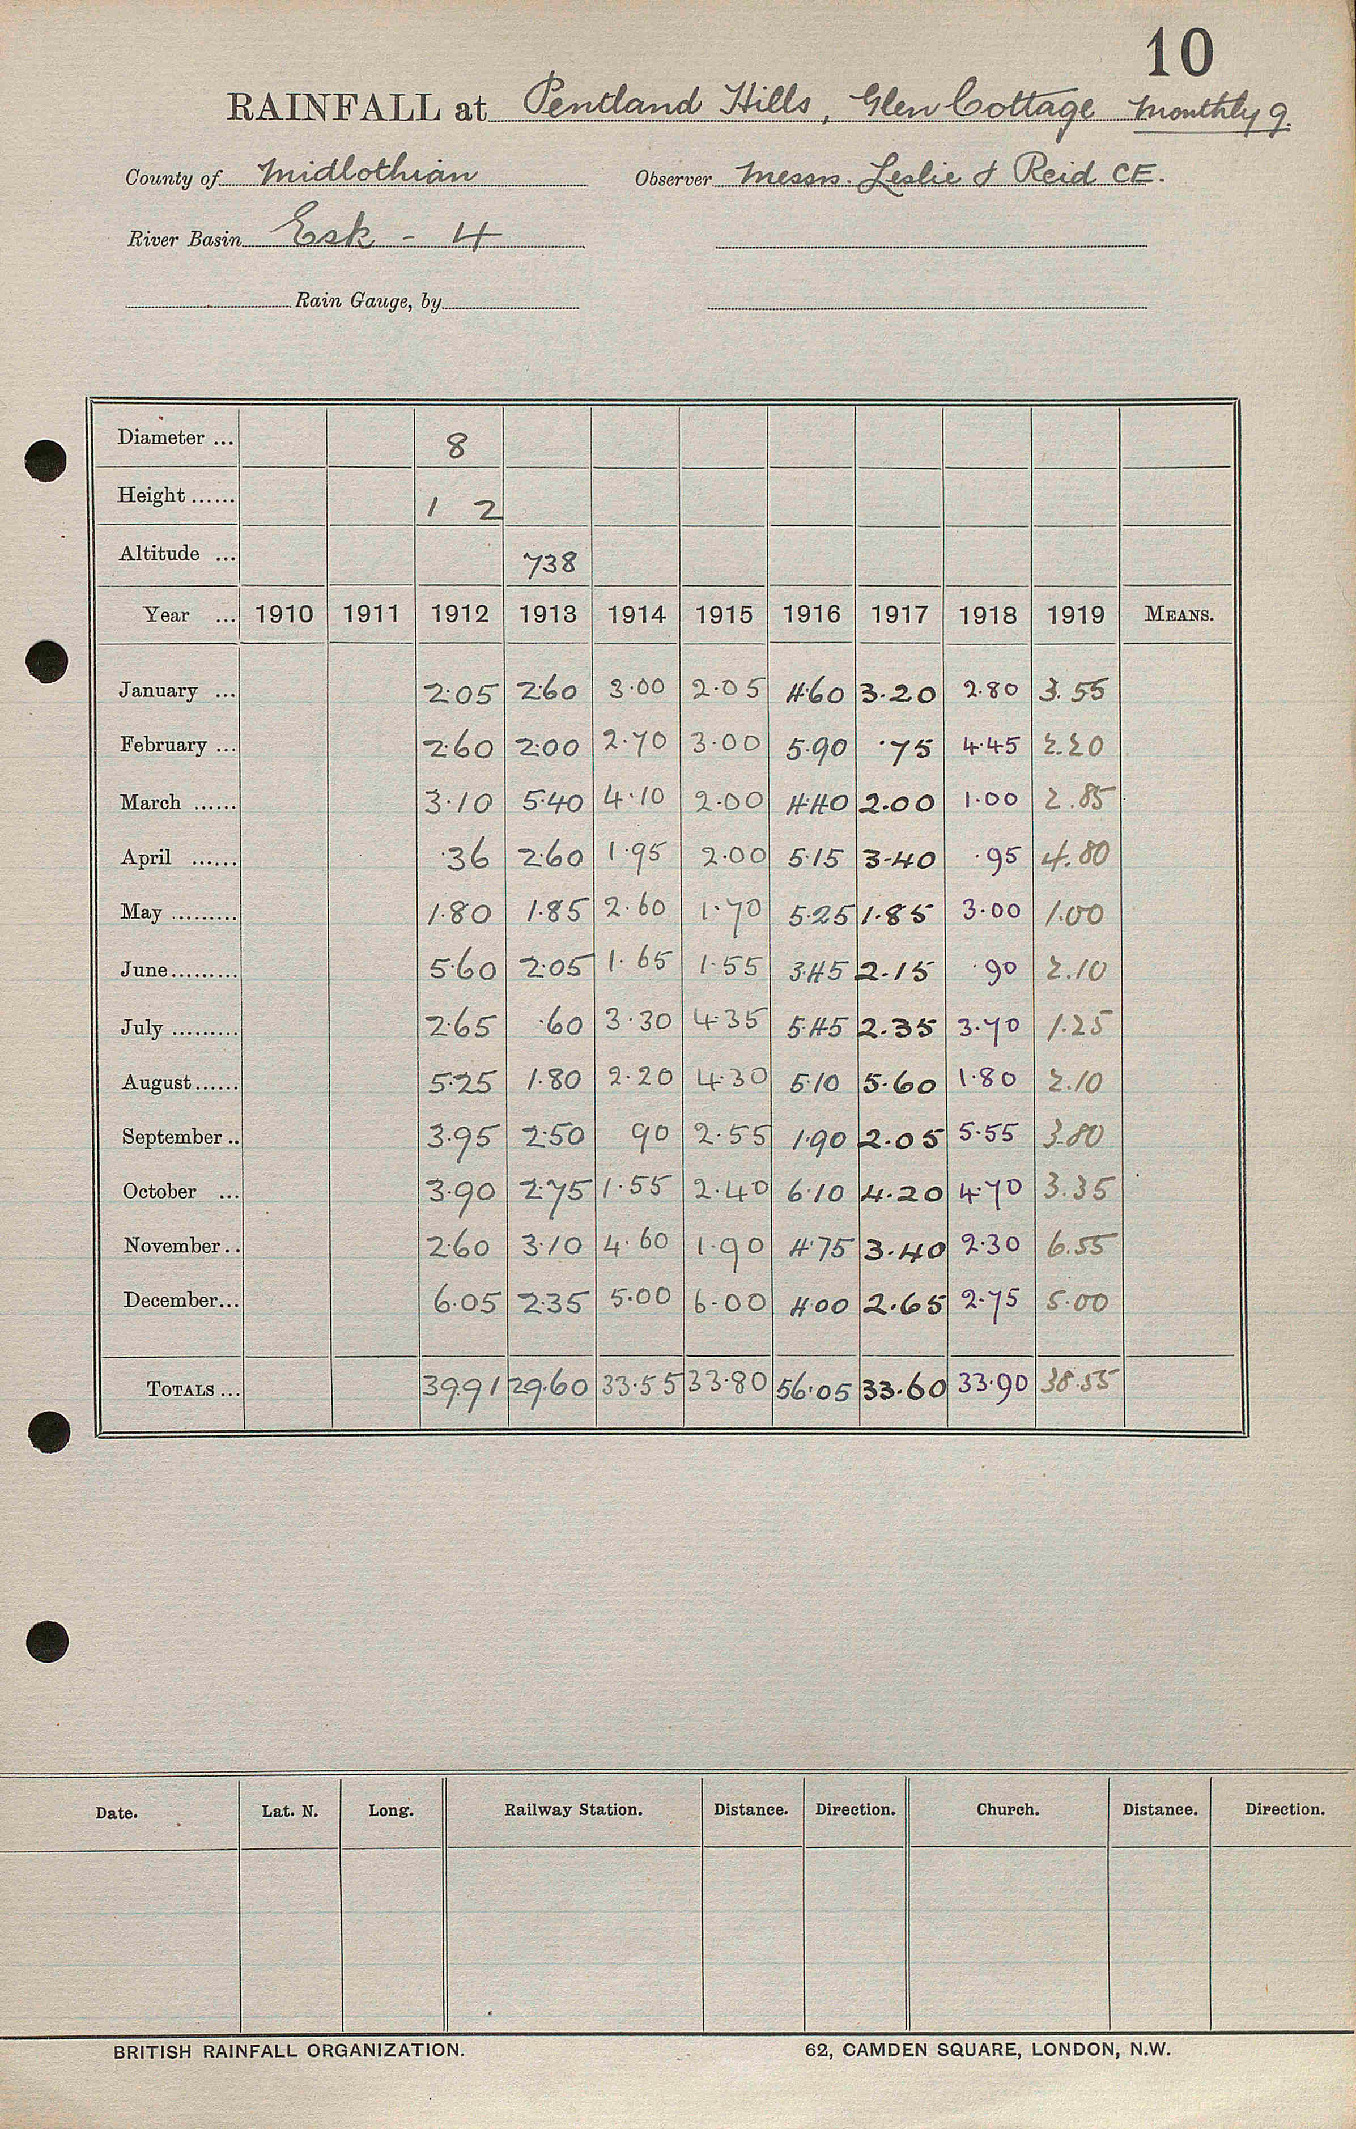 10
RAINFALL at Pentland Hills, Glen Cottage Monthly g.
County of Midlothian Observer Messrs. Leslie & Reid CE.
River Basin Esk - 4
Rain Gauge, by
Diameter ... 8
Height ...... 1 2
Altitude ... 738
Year ... 1910 1911 1912 1913 1914 1915 1916 1917 1918 1919 MEANS.
January ... 2.05 2.60 3.00 2.05 4.60 3.20 2.80 3.55
February ... 2.60 2.00 2.70 3.00 5.90 .75 4.45 2.20
March ...... 3.10 5.40 4.10 2.00 4.40 2.00 1.00 2.85
April ...... .36 2.60 1.95 2.00 5.15 3.40 .95 4.80
May ......... 1.80 1.85 2.60 1.70 5.25 1.85 3.00 1.00
June......... 5.60 2.05 1.65 1.55 3.45 2.15 .90 2.10
July ......... 2.65 .60 3.30 4.35 5.45 2.35 3.70 1.25
August...... 5.25 1.80 2.20 4.30 5.10 5.60 1.80 2.10
September .. 3.95 2.50 90 2.55 1.90 2.05 5.55 3.80
October ... 3.90 2.75 1.55 2.40 6.10 4.20 4.70 3.35
November .. 2.60 3.10 4.60 1.90 4.75 3.40 2.30 6.55
December... 6.05 2.35 5.00 6.00 4.00 2.65 2.75 5.00
TOTALS ... 39.91 29.60 33.55 33.80 56.05 33.60 33.90 38.55
Date. Lat. N. Long. Railway Station. Distance. Direction. Church. Distance. Direction.
BRITISH RAINFALL ORGANIZATION. 62, CAMDEN SQUARE, LONDON, N.W.